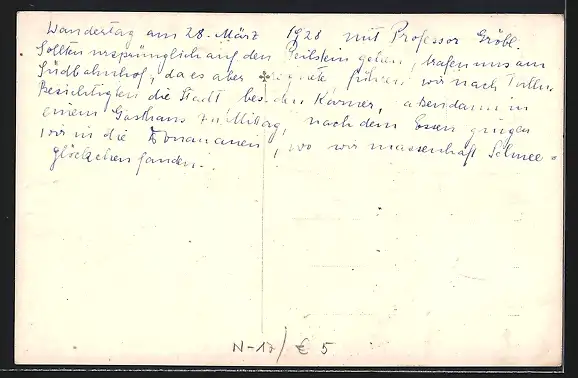 Wandertag am 28. März 1928 mit Professor Gröbl.
Sollten ursprünglich auf den Peilstein gehen, trafen uns am
Südbahnhof, da es aber regnete fuhren wir nach Tulln.
Besichtigten die Stadt, bes. den Karner, aßen dann in
einem Gasthaus zu Mittag, nach dem Essen gingen
wir in die Donauauen, wo wir massenhaft Schnee=
glöckchen fanden.
N-17/ € 5